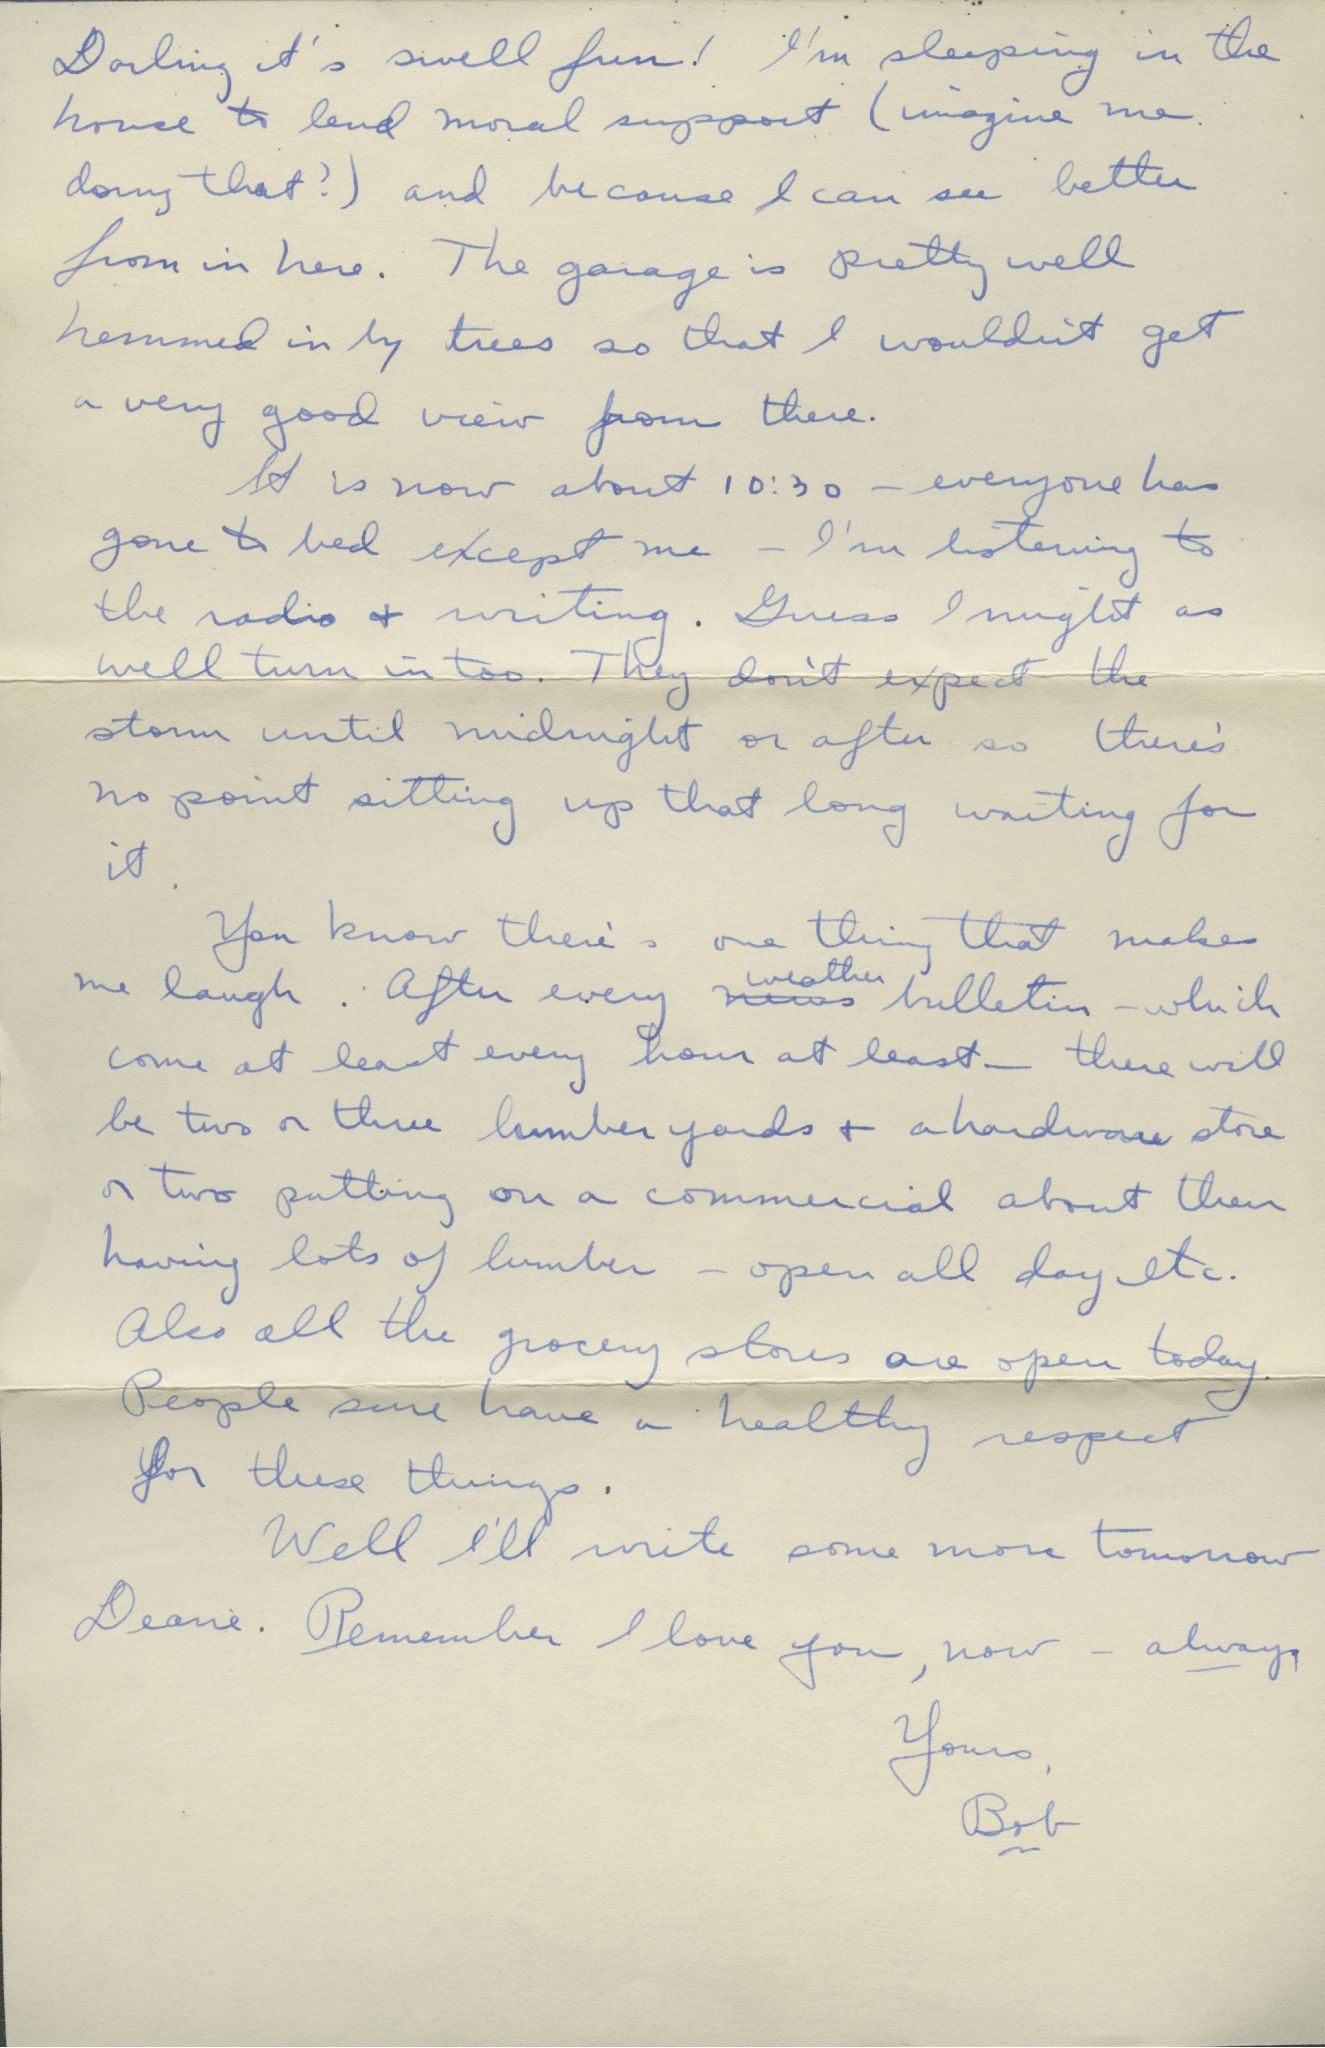 Darling it's swell fun! I'm sleeping in the
house to lend moral support (imagine me
doing that?) and because I can see better
from in here. The garage is pretty well
hemmed in by trees so that I wouldn't get
a very good view from there.
It is now about 10:30 – everyone has
gone to bed except me – I'm listening to
the radio + writing. Guess I might as
well turn in too. They don't expect the
storm until midnight or after so there's
no point sitting up that long waiting for
it.
You know there's one thing that makes
me laugh. After every news weather bulletin – which
come at least every hour at least – there will
be two or three lumber yards + a hardware store
or two putting on a commercial about their
having lots of lumber – open all day etc.
Also all the grocery stores are open today.
People sure have a healthy respect
for these things.
Well I'll write some more tomorrow
Deane. Remember I love you, now – always
Yours,
Bob